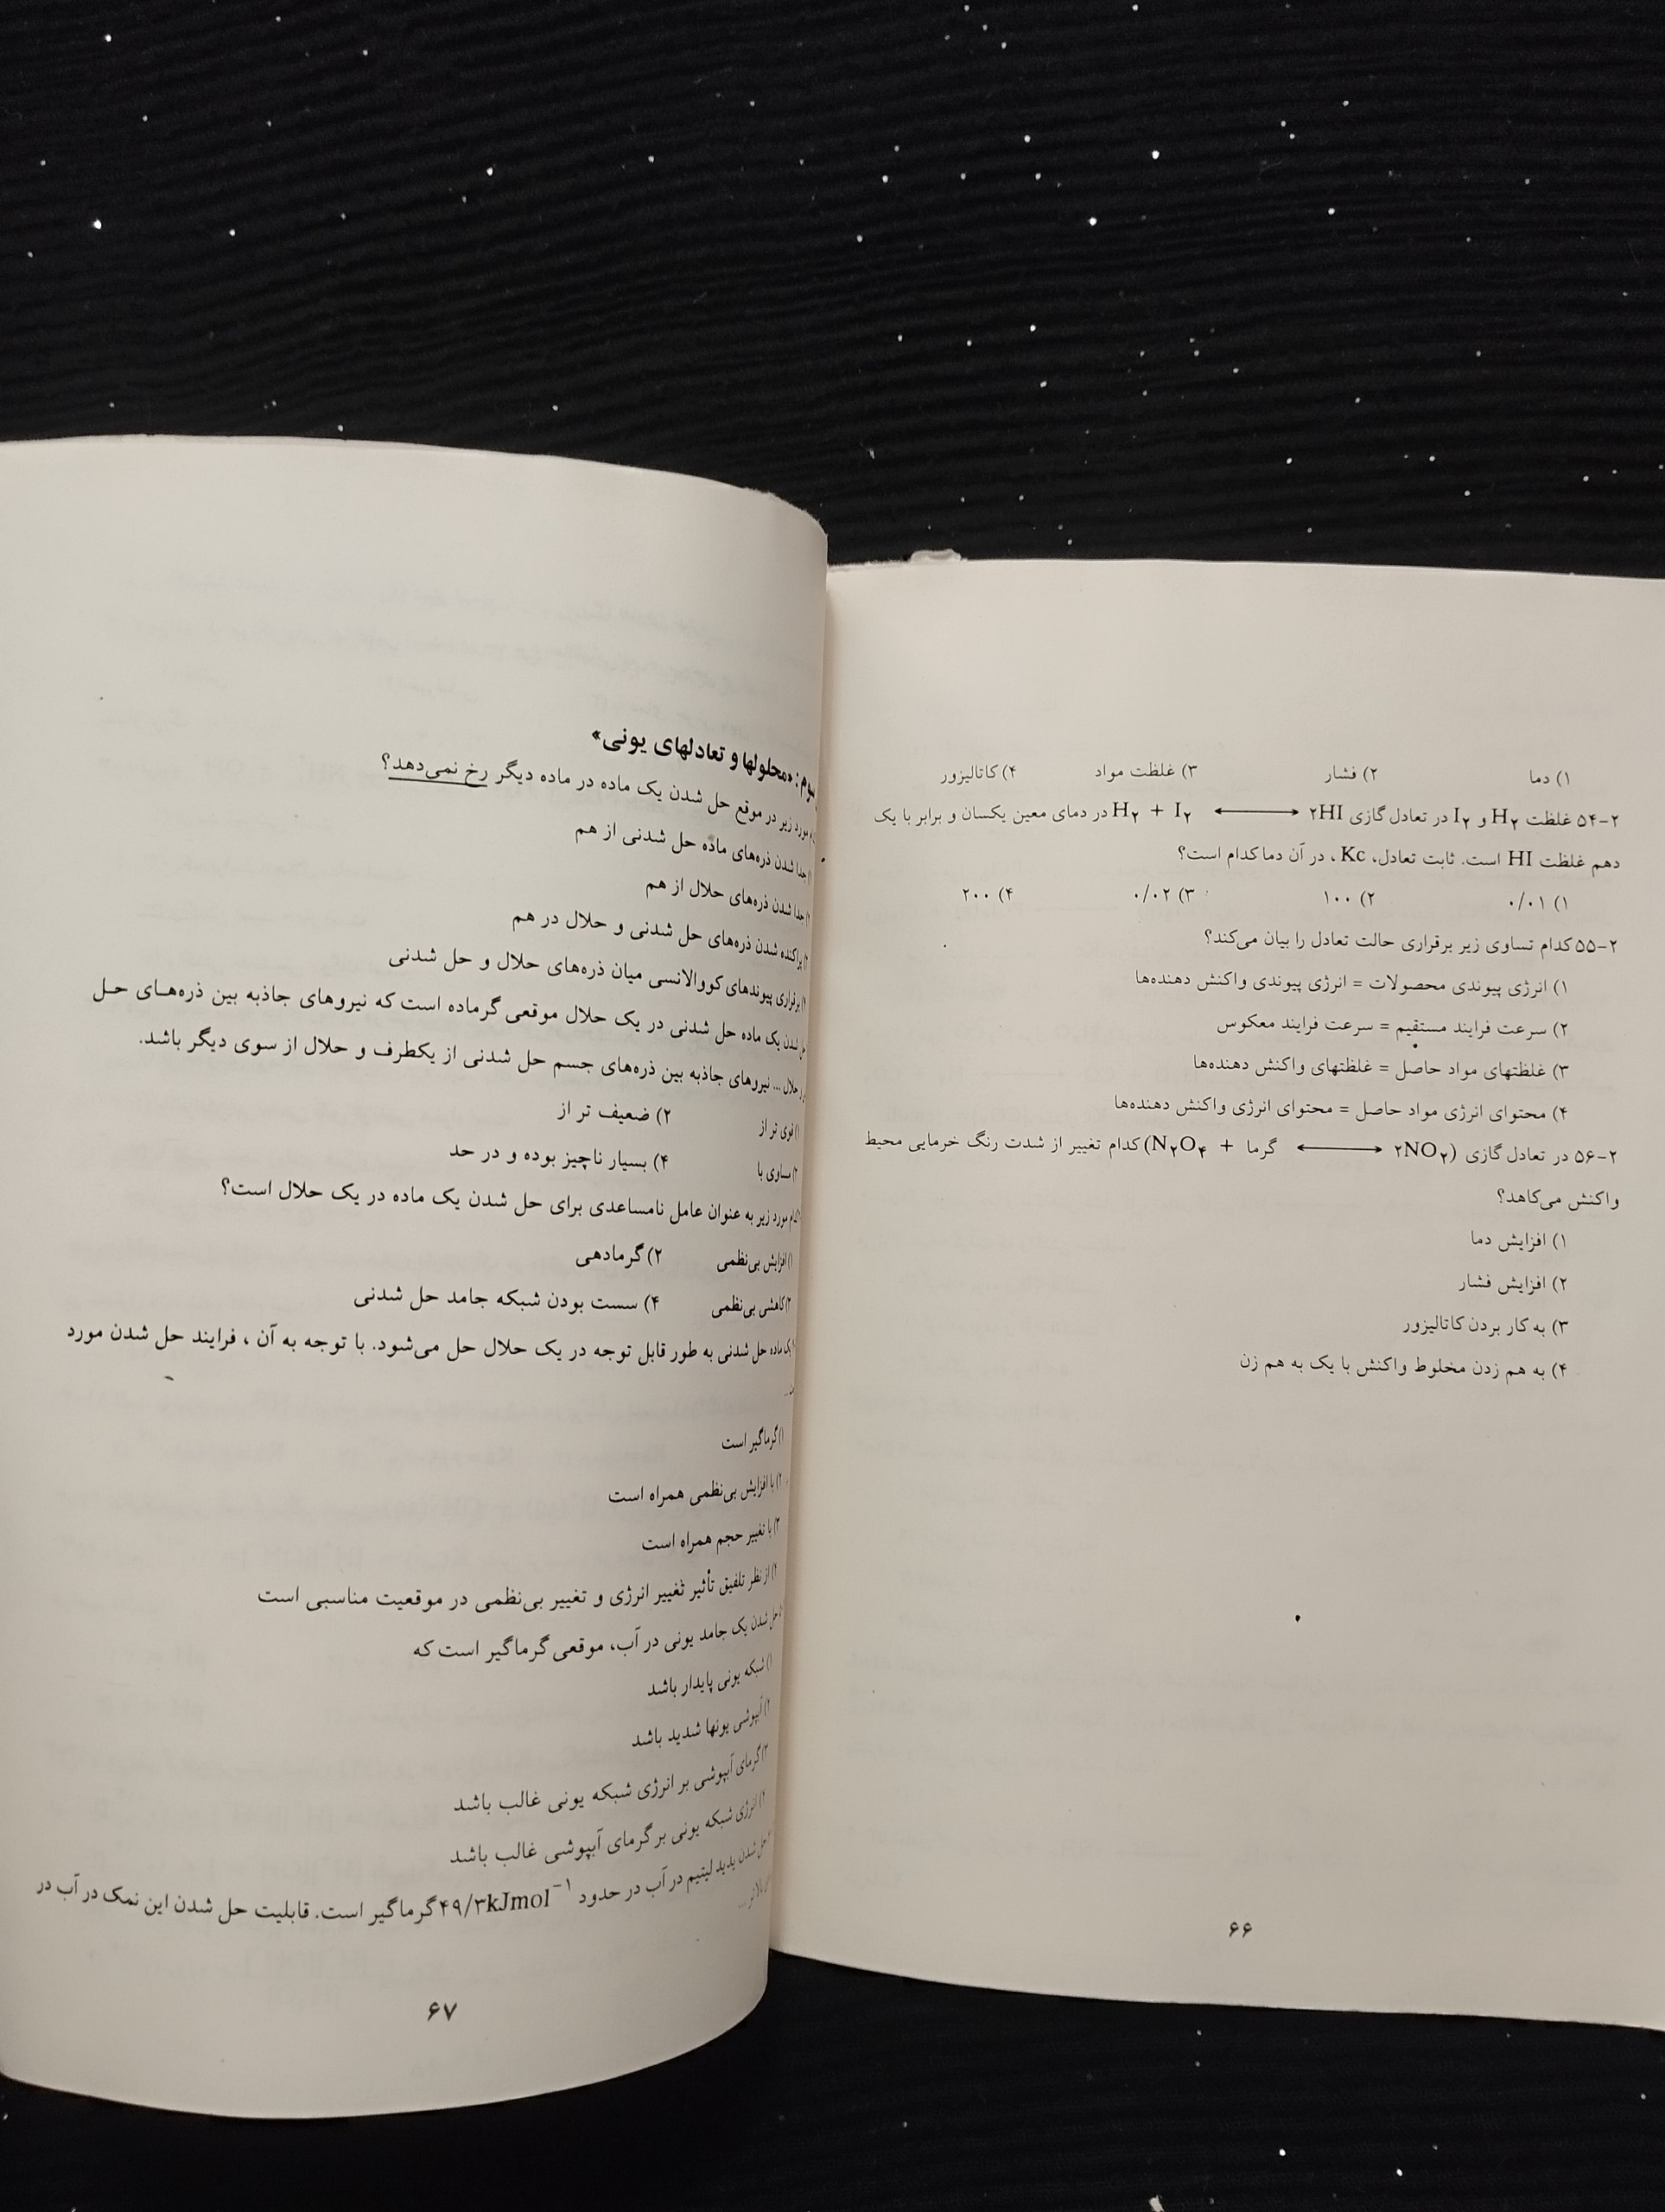 ۱) دما ۲) فشار ۳) غلظت مواد ۴) کاتالیزور
۲-۵۴ غلظت H۲ و I۲ در تعادل گازی ۲HI ⟷ H۲ + I۲ در دمای معین یکسان و برابر با یک
دهم غلظت HI است. ثابت تعادل، Kc ، در آن دما کدام است؟
۱) ۰/۰۱ ۲) ۱۰۰ ۳) ۰/۰۲ ۴) ۲۰۰
۲-۵۵ کدام تساوی زیر برقراری حالت تعادل را بیان می‌کند؟
۱) انرژی پیوندی محصولات = انرژی پیوندی واکنش دهنده‌ها
۲) سرعت فرایند مستقیم = سرعت فرایند معکوس
۳) غلظتهای مواد حاصل = غلظتهای واکنش دهنده‌ها
۴) محتوای انرژی مواد حاصل = محتوای انرژی واکنش دهنده‌ها
۲-۵۶ در تعادل گازی (۲NO۲ ⟷ گرما + N۲O۴) کدام تغییر از شدت رنگ خرمایی محیط
واکنش می‌کاهد؟
۱) افزایش دما
۲) افزایش فشار
۳) به کار بردن کاتالیزور
۴) به هم زدن مخلوط واکنش با یک به هم زن
۶۶
سوم: «محلولها و تعادلهای یونی»
مورد زیر در موقع حل شدن یک ماده در ماده دیگر رخ نمی‌دهد؟
جدا شدن ذره‌های ماده حل شدنی از هم
جدا شدن ذره‌های حلال از هم
پراکنده شدن ذره‌های حل شدنی و حلال در هم
برقراری پیوندهای کووالانسی میان ذره‌های حلال و حل شدنی
شدن یک ماده حل شدنی در یک حلال موقعی گرماده است که نیروهای جاذبه بین ذره‌های حل
حلال ... نیروهای جاذبه بین ذره‌های جسم حل شدنی از یکطرف و حلال از سوی دیگر باشد.
۱) قوی تر از ۲) ضعیف تر از
۳) مساوی با ۴) بسیار ناچیز بوده و در حد
کدام مورد زیر به عنوان عامل نامساعدی برای حل شدن یک ماده در یک حلال است؟
۱) افزایش بی‌نظمی ۲) گرمادهی
۳) کاهش بی‌نظمی ۴) سست بودن شبکه جامد حل شدنی
یک ماده حل شدنی به طور قابل توجه در یک حلال حل می‌شود. با توجه به آن ، فرایند حل شدن مورد
...
۱) گرماگیر است
۲) با افزایش بی‌نظمی همراه است
۳) با تغییر حجم همراه است
۴) از نظر تلفیق تأثیر تغییر انرژی و تغییر بی‌نظمی در موقعیت مناسبی است
حل شدن یک جامد یونی در آب، موقعی گرماگیر است که
۱) شبکه یونی پایدار باشد
۲) آبپوشی یونها شدید باشد
۳) گرمای آبپوشی بر انرژی شبکه یونی غالب باشد
۴) انرژی شبکه یونی بر گرمای آبپوشی غالب باشد
حل شدن یدید لیتیم در آب در حدود ۴۹/۳kJmol⁻¹ گرماگیر است. قابلیت حل شدن این نمک در آب در
۶۷